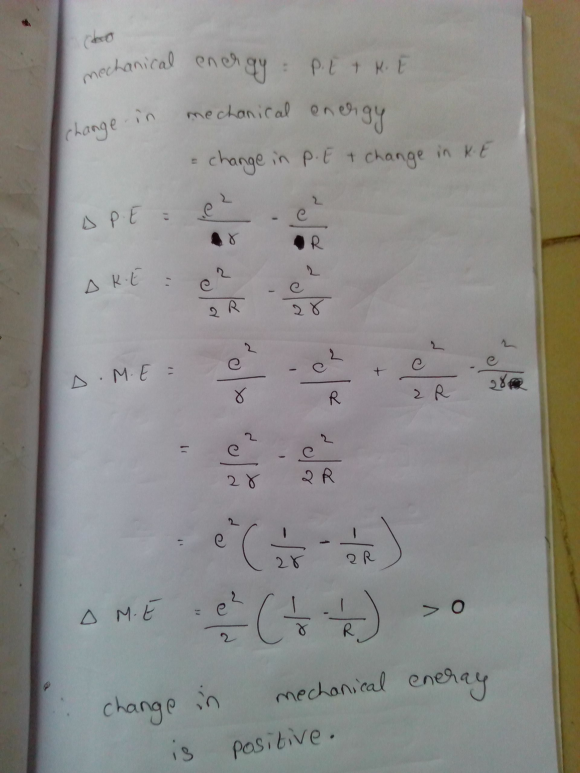 mechanical energy = P.E + K.E
change in mechanical energy
= change in P.E + change in K.E
Δ P E = e²/r - e²/R
Δ K.E = e²/2R - e²/2r
Δ . M.E = e²/r - e²/R + e²/2R - e²/2r
= e²/2r - e²/2R
= e² ( 1/2r - 1/2R )
Δ M.E = e²/2 ( 1/r - 1/R ) > 0
∴ change in mechanical energy
is positive.